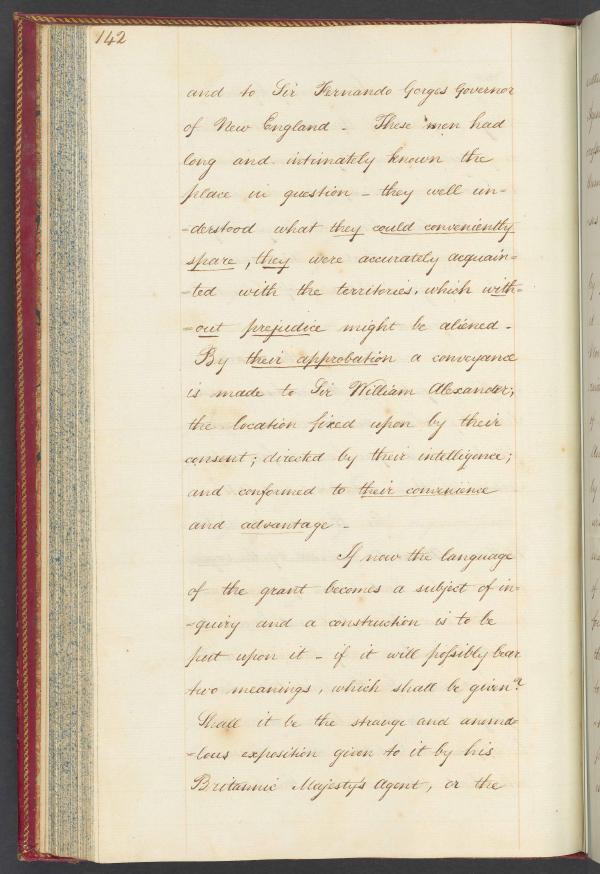 142
and to Sir Fernando Gorges Governor
of New England - These men had
long and intimately known the
place in question - they well un-
-derstood what they could conveniently
spare, they were accurately acquain=
-ted with the territories, which with=
=out prejudice might be aliened -
By their approbation a conveyance
is made to Sir William Alexander,
the location fixed upon by their
consent; directed by their intelligence;
and conformed to their convenience
and advantage -
If now the language
of the grant becomes a subject of in-
-quiry and a construction is to be
put upon it - if it will possibly bear
two meanings, which shall be given?
Shall it be the strange and anoma-
-lous exposition given to it by his
Britannic Majesty's Agent, or the